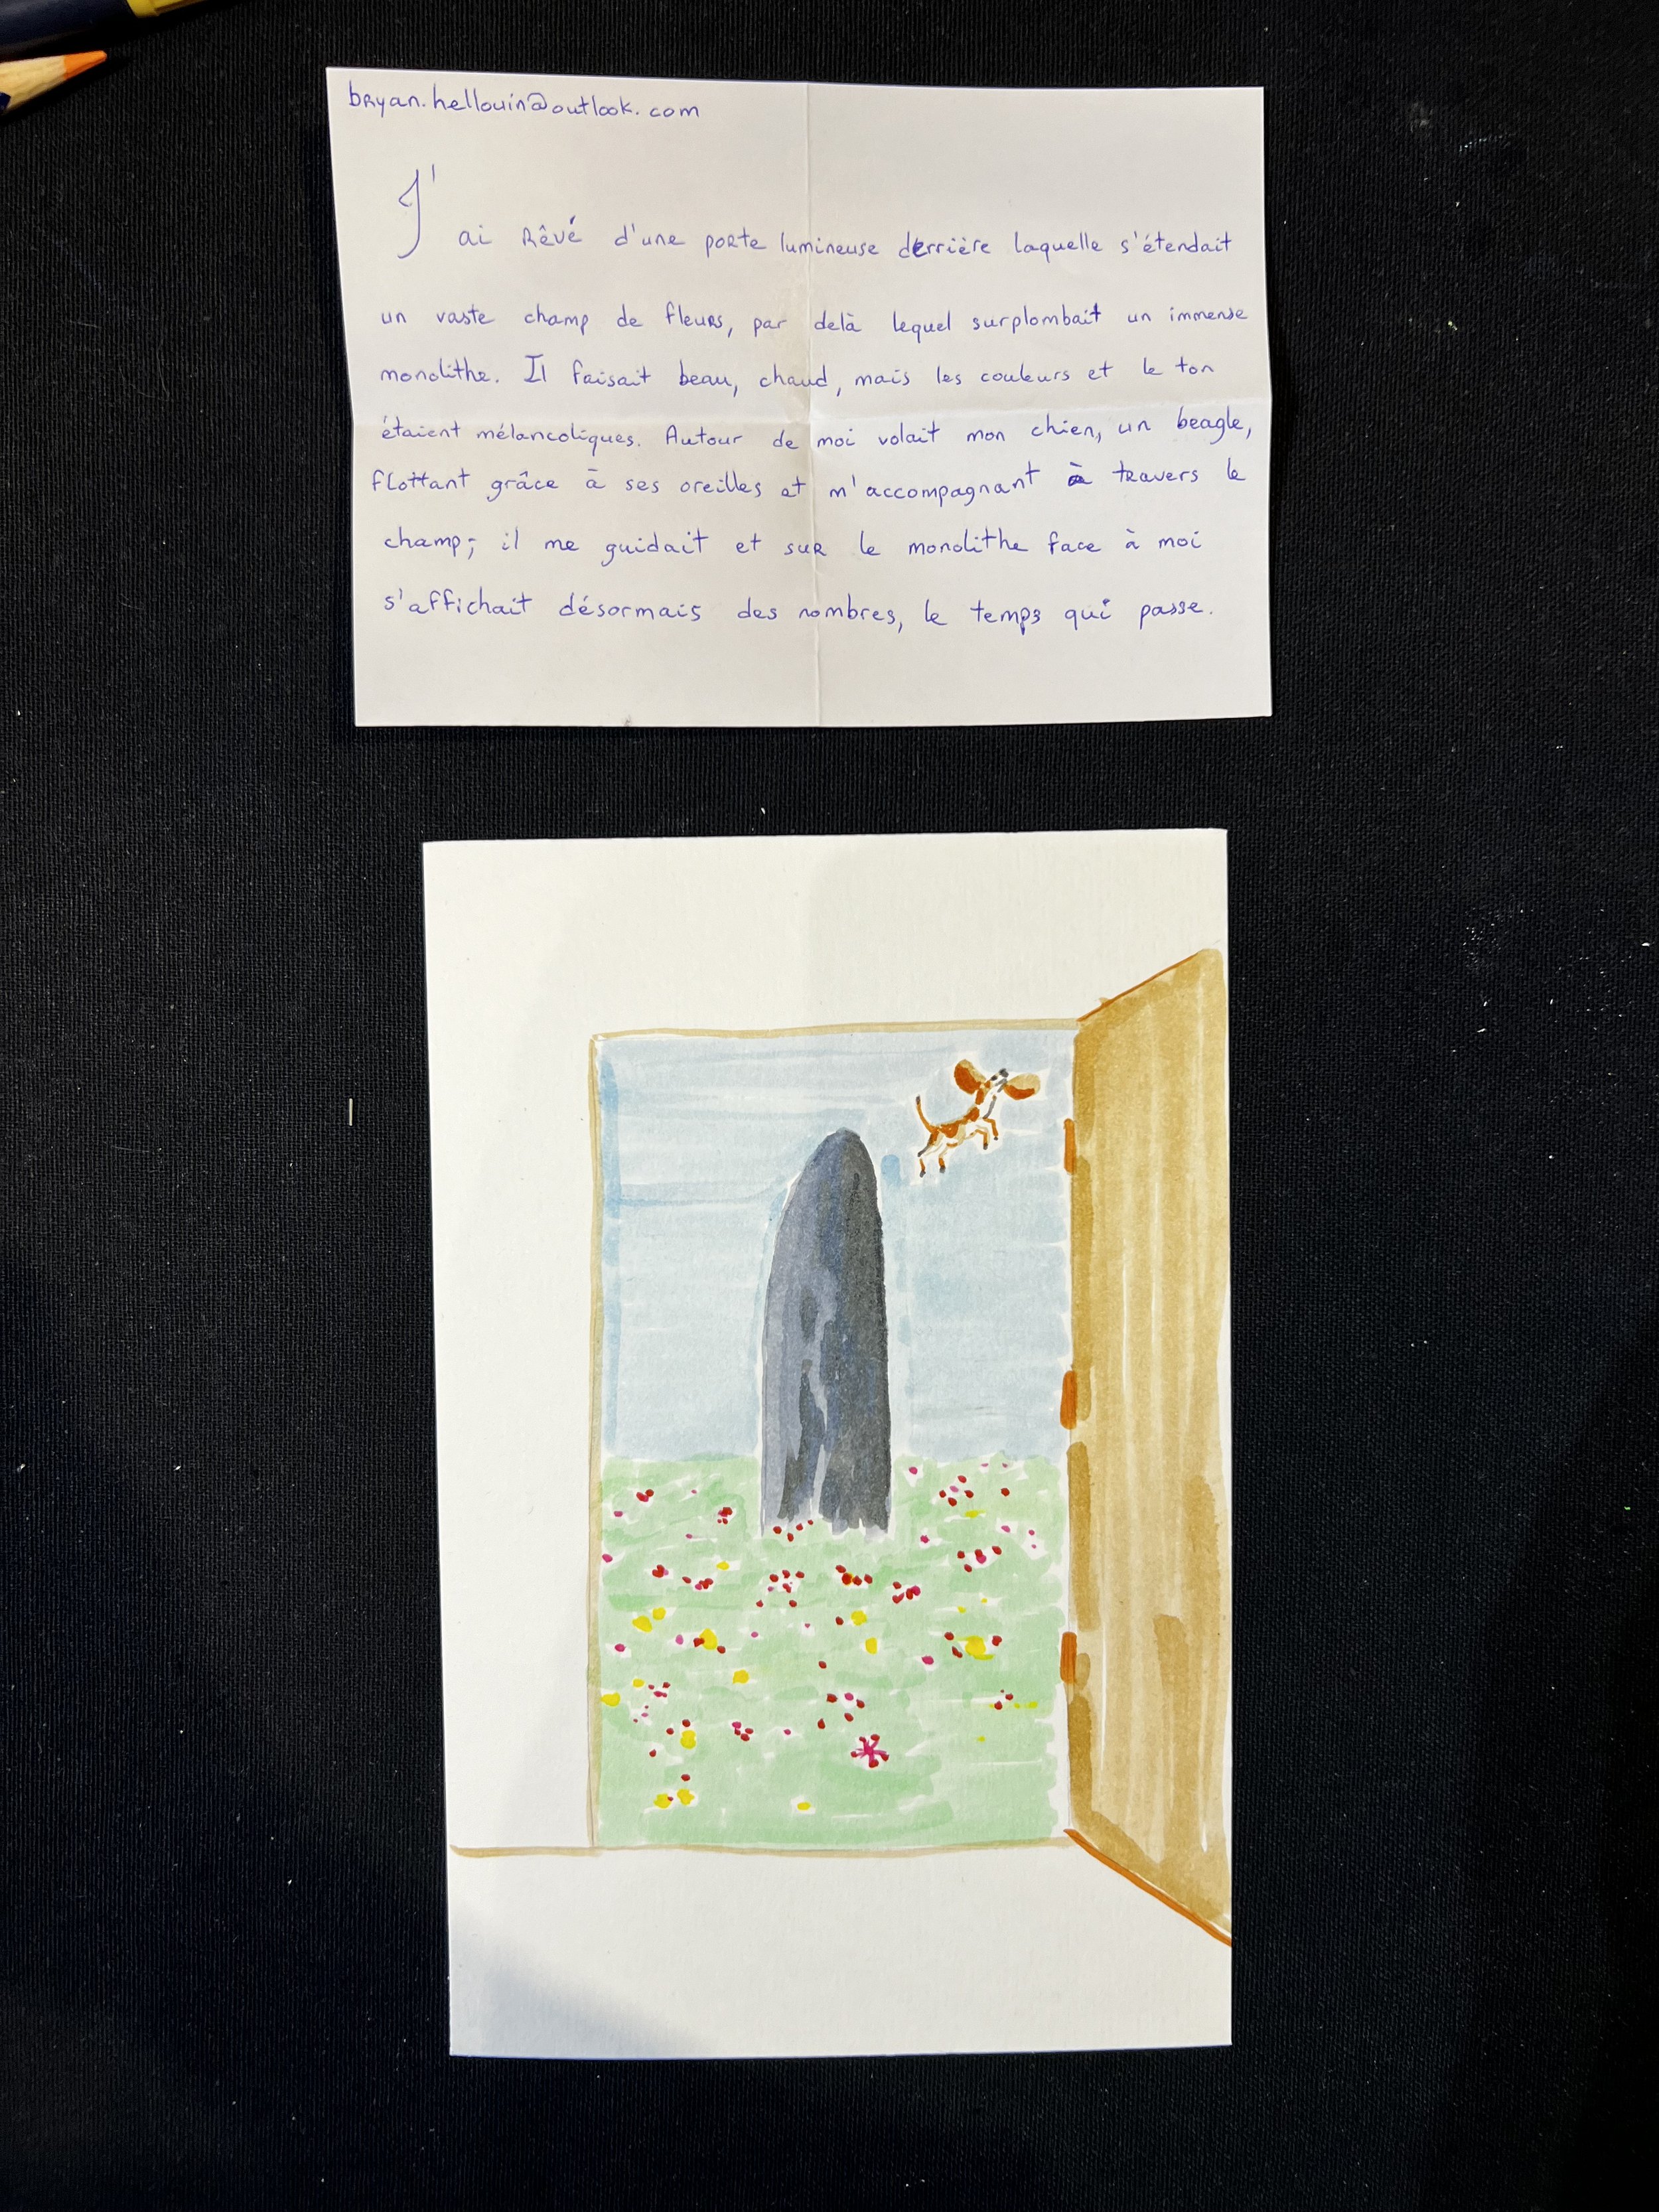 bryan.hellouin@outlook.com
J'ai Rêvé d'une porte lumineuse derrière laquelle s'étendait
un vaste champ de fleurs, par delà lequel surplombait un immense
monolithe. Il faisait beau, chaud, mais les couleurs et le ton
étaient mélancoliques. Autour de moi volait mon chien, un beagle,
flottant grâce à ses oreilles et m'accompagnant à travers le
champ; il me guidait et sur le monolithe face à moi
s'affichait désormais des nombres, le temps qui passe.